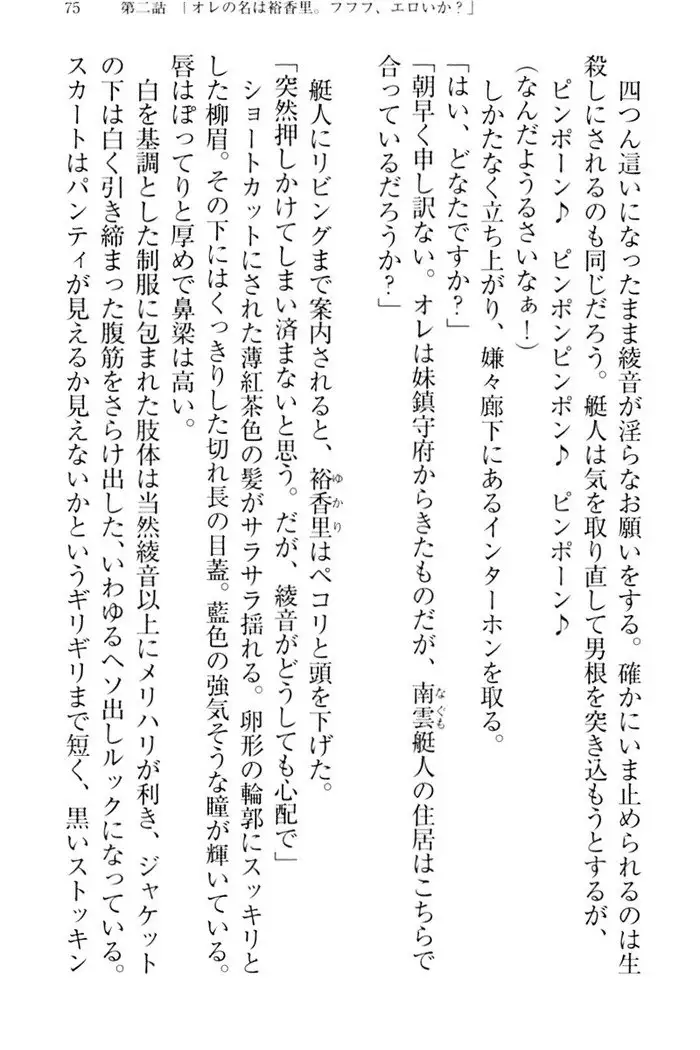 75　第二話　「オレの名は裕香里。フフフ、エロいか？」
四つん這いになったまま綾音が淫らなお願いをする。確かにいま止められるのは生
殺しにされるのも同じだろう。艇人は気を取り直して男根を突き込もうとするが、
ピンポーン♪　ピンポンピンポン♪　ピンポーン♪
(なんだようるさいなぁ！)
しかたなく立ち上がり、嫌々廊下にあるインターホンを取る。
「はい、どなたですか？」
「朝早く申し訳ない。オレは妹鎮守府からきたものだが、南雲艇人の住居はこちらで
合っているだろうか？」
艇人にリビングまで案内されると、裕香里はペコリと頭を下げた。
「突然押しかけてしまい済まないと思う。だが、綾音がどうしても心配で」
ショートカットにされた薄紅茶色の髪がサラサラ揺れる。卵形の輪郭にスッキリと
した柳眉。その下にはくっきりした切れ長の目蓋。藍色の強気そうな瞳が輝いている。
唇はぽってりと厚めで鼻梁は高い。
白を基調とした制服に包まれた肢体は当然綾音以上にメリハリが利き、ジャケット
の下は白く引き締まった腹筋をさらけ出した、いわゆるヘソ出しルックになっている。
スカートはパンティが見えるか見えないかというギリギリまで短く、黒いストッキン